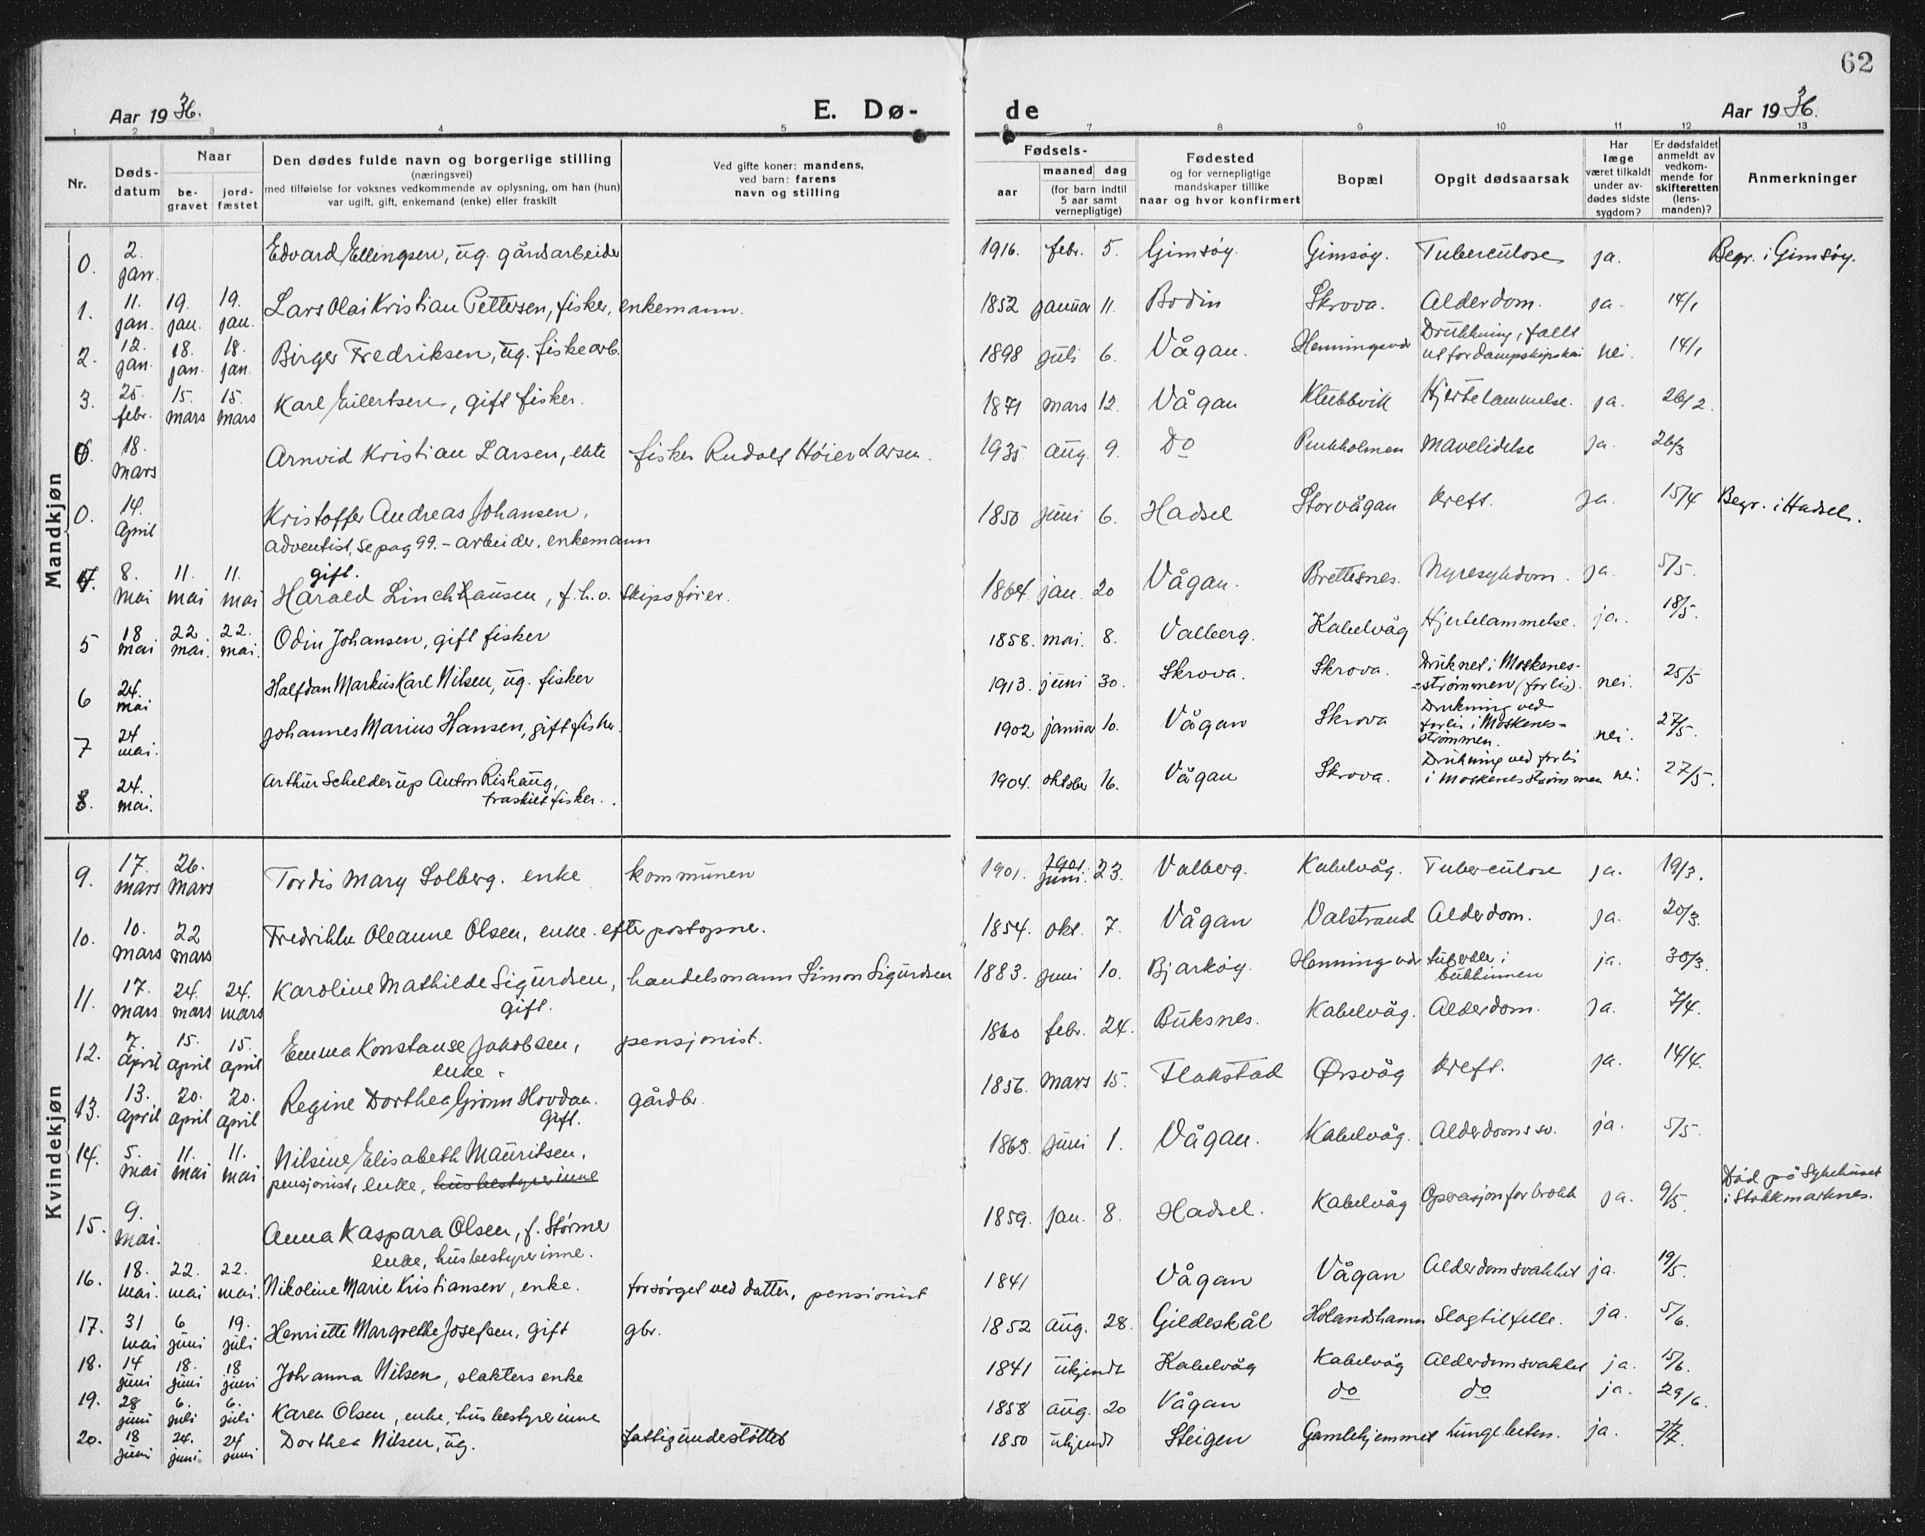 62
Aar 1936.
E. Dø-
de
Aar 1936.
1 2 3 4 5 6 7 8 9 10 11 12 13
Nr.
Døds-
datum
Naar
be-
gravet
jord-
fæstet
Den dødes fulde navn og borgerlige stilling
(næringsvei)
med tilføielse for voksnes vedkommende av oplysning, om han (hun)
var ugift, gift, enkemand (enke) eller fraskilt
Ved gifte koner: mandens,
ved barn: farens
navn og stilling
Fødsels-
aar
maaned dag
(for barn indtil
5 aar samt
vernepligtige)
Fødested
og for vernepligtige
mandskaper tillike
naar og hvor konfirmert
Bopæl
Opgit dødsaarsak
Har
læge
været tilkaldt
under av-
dødes sidste
sygdom?
Er dødsfaldet
anmeldt av
vedkom-
mende for
skifteretten
(lens-
manden)?
Anmerkninger
Mandkjøn
0. 2. jan. Edvard Ellingsen, ug. gårdsarbeider 1916. febr. 5. Gimsøy. Gimsøy. Tuberculose ja. Begr. i Gimsøy.
1. 11. jan. 19. jan. 19. jan. Lars Olai Kristian Pettersen, fisker, enkemann. 1852 januar 11. Bodin Skrova. Alderdom. ja. 14/1
2. 12. jan. 18. jan. 18. jan. Birger Fredriksen, ug. fiskearb. 1898 juli 6. Vågan. Henningsvær Drukkning, fallt
ut for dampskipskai nei. 14/1
3. 25. febr. 15. mars 15. mars Karl Eilertsen, gift fisker. 1871 mars 12. Vågan Klubbvik Hjertelammelse. ja. 26/2.
0. 18. mars Arnvid Kristian Larsen, ekte fisker Rudolf Høier Larsen. 1935 aug. 9. Do Purkholmen Mavelidelse ja. 26/3
0. 14. April Kristoffer Andreas Johansen, 1850 juni 6. Hadsel Storvågan Kreft. ja. 15/4 Begr. i Hadsel.
adventist, se pag 99. – arbeider. enkemann
4. 8. mai 11. mai 11. mai gift.
Harald Linchhausen, f.h.v. skipsfører. 1864. jan. 20 Vågan. Brettesnes. Nyresykdom. ja. 5/5.
5 18 mai 22 mai. 22. mai. Odin Johansen, gift fisker 1858. mai. 8. Valberg. Kabelvåg Hjertelammelse. ja. 18/5.
6 24. mai Halfdan Markus Karl Nilsen, ug. fisker 1913. juni 30. Skrova. Skrova. Druknet i Moskenes-
=strømmen (forlis). nei. 25/5
7 24 mai. Johannes Marius Hansen, gift fisker. 1902 januar 10. Vågan Skrova Drukning ved
forlis i Moskenes-
strømmen. nei. 27/5.
8. 24. mai. Arthur Schelderup Anton Rishaug, 1904. oktober 16. Vågan Skrova. Drukning ved forlis
fraskilt fisker. i Moskenesstrømmen nei. 27/5.
Kvindekjøn
9. 17. mars 26. mars Tordis Mary Solberg. enke kommunen 1901. 1901 juni. 23. Valberg. Kabelvåg. Tuberculose ja. 19/3.
10. 10. mars 22 mars Fredrikke Oleanne Olsen, enke. efter postopne. 1854. okt. 7. Vågan Valstrand Alderdom. ja. 20/3.
11. 17. mars 24. mars 24. mars Karoline Mathilde Sigurdsen, handelsmann Simon Sigurdsen 1883. juni 10. Bjarkøy. Henningsvær tuberkler i
gift. bukhinnen ja. 30/3.
12. 7. April 15. april 15. april Emma Konstanse Jakobsen, pensjonist. 1860 febr. 24. Buksnes. Kabelvåg. Alderdom. ja. 7/4.
enke.
13. 13. April 20. april 20. april Regine Dorthea Grønn Hovdan. gårdbr. 1856. mars 15. Flakstad Ørsvåg Kreft. ja. 14/4.
gift.
14. 5. mai 11. mai 11. mai Nilsine Elisabeth Mauritsen, 1863. juni 1. Vågan. Kabelvåg. Alderdomssv. ja. 5/5.
pensjonist, enke, husbestyrerinne
15. 9. mai. Anna Kaspara Olsen, f. Størmer 1859. jan. 8. Hadsel. Kabelvåg Operasjon for brokk ja. 9/5. Død på Sykehuset
i Stokkmarknes.
enke, husbestyrerinne.
16. 18. mai. 22. mai 22. mai. Nikoline Marie Kristiansen, enke. forsørget ved datter, pensionist 1841 Vågan Vågan Alderdomsvakhet ja. 19/5.
17. 31 mai 6 juni 19. juli Henriette Margrethe Josefsen, gift gbr. 1852 aug. 28. Gildeskål Holandshamn Slagtilfelle. ja. 5/6.
18. 14 juni 18. juni 18 juni Johanna Nilsen, slakters enke 1841 ukjendt Kabelvåg Kabelvåg Alderdomsvakhet ja. 15/6.
19. 28 juni 6. juli 6. juli Karen Olsen, enke, husbestyrerinne 1858 aug. 20 Vågan do do ja. 29/6.
20. 18 juni 24. juni 24 juni Dorthea Nilsen, ug. fattigundestøttet 1850 ukjendt Steigen Gamlehjemmet Lungebeten. ja.